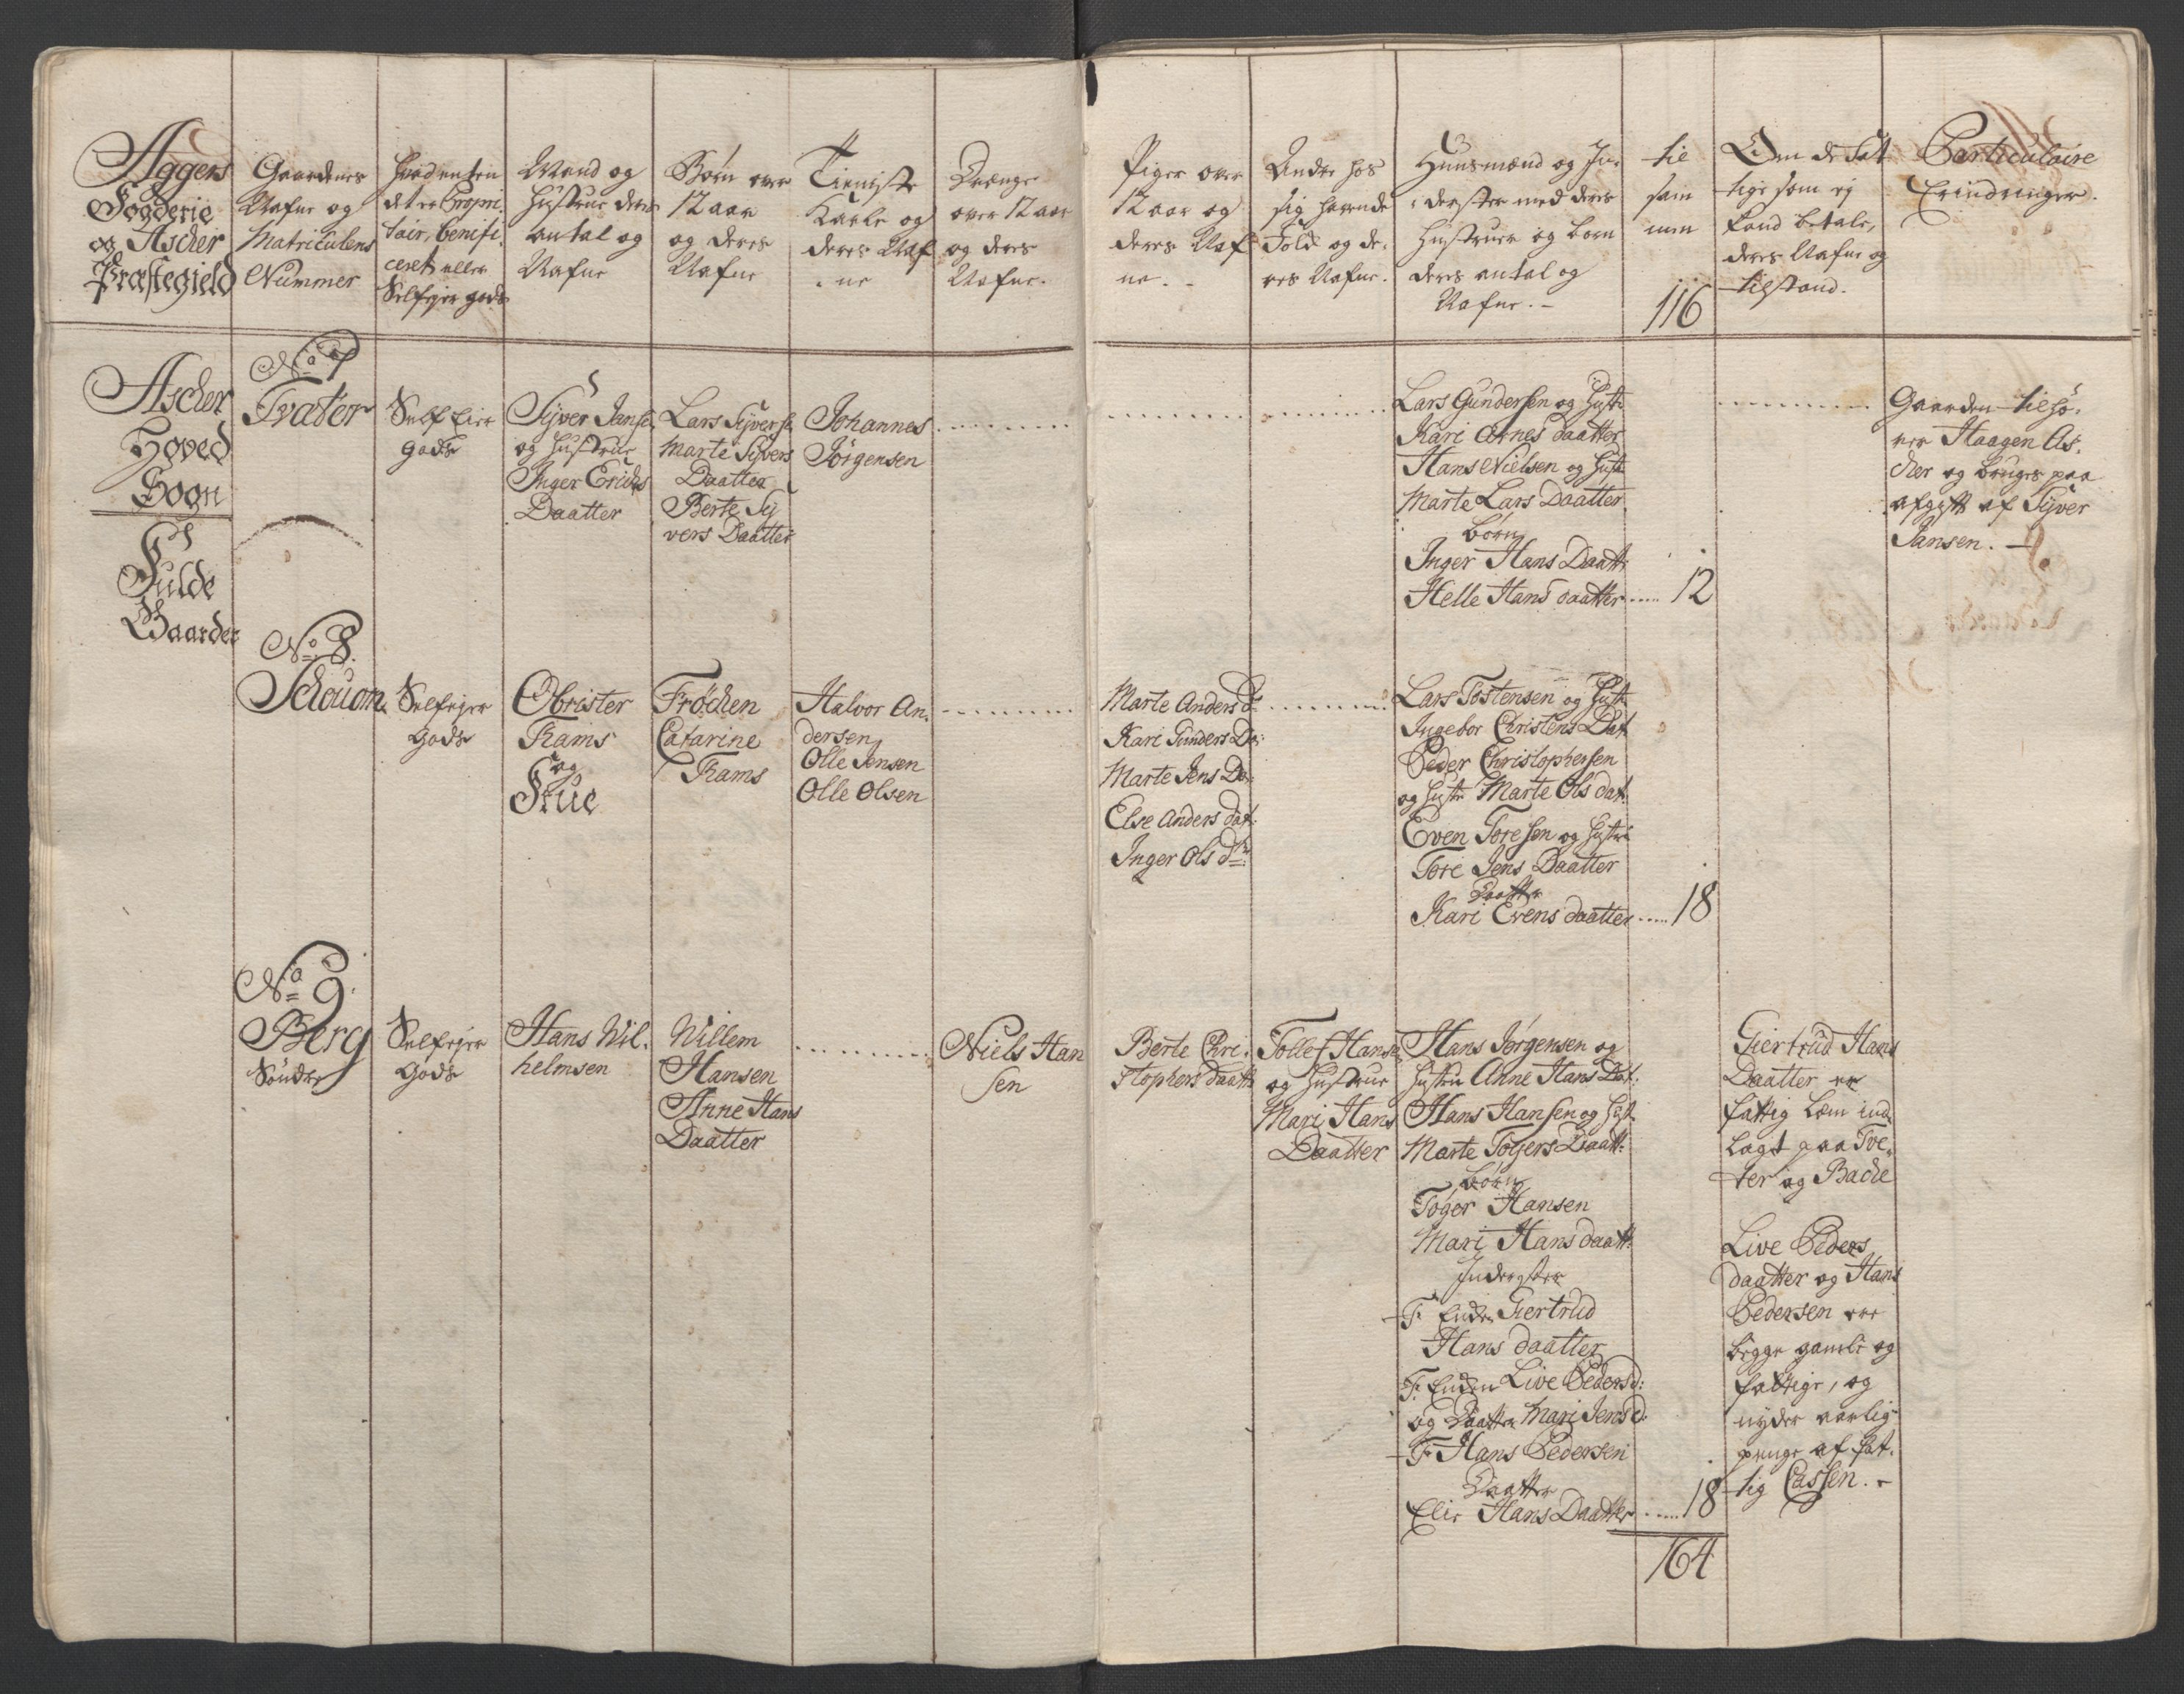 Aggers
Fogderie
og Ascher
Præstegield
Gaardenes
Nafne og
Matriculens
Nummer
hvad enten
det er Propri-
tair, Benifi-
ceret eller
Selfejer gods
Mand og
Hustrue deres
antal og
Nafne
Børn over
12 aar
og deres
Nafne
Tieniste
Karle og
deres Naf
-ne
Drænge
over 12 aar
og deres
Nafne.
Piger over
12 aar og
deres Naf
ne.
Andre hos
sig havende
Folk og de-
res Nafne.
Huusmænd og In-
derster med deres
Hustruer og børn
deres antal og
Nafne.
til
sam
men
116
Om de Fat
tige som ej
kand betale,
deres Nafne og
tilstand.
Particulaire
Erindringer.
Ascher
Hoved
Sogn
Fulde
Gaarder
No 7
Tvæter
Self Eier
gods
Syver Janse.
og Hustrue
Inger Erichs
Daatter
Lars Syverse
Marte Syvers
Daatter
Berte Sy
vers Daatter
Johannes
Jørgensen
Lars Gundersen og Hust:
Kari Arnes daatter
Hans Nielsen og Hust
Marte Lars Daatter
børn
Inger Hans Daatt:
Helle Hans daatter ..... 12
Gaarden tilhø-
rer Haagen As-
cher og bruges paa
afgift af Syver
Jansen.
No 8.
Schoüom
Selfejer
Gods
Obrister
Rams
og
Frue
Frøchen
Catarine
Rams
Halvor An-
dersen
Olle Jensen
Olle Olsen
Marte Anders d:
Kari Gunders Da:
Marte Jens Da:
Else Anders dat:
Inger Ols dtr:
Lars Tostensen og Hust:
Ingebor Christens Dat
Peder Christophersen
og Hustr Marte Ols dat:
Even Toresen og Hustru
Tore Jens Daatter
Daatter
Kari Evens daatter ..... 18
No 9.
Berg
Sønder
Selfejer
Gods
Hans Wil-
helmsen
Willem
Hansen
Anne Hans
Daatter
Niels Han
sen
Berte Chri-
stophers daatt
Tollef Hanse
og Hustrue
Mari Hans
Daatter
Hans Jørgensen og
Hustru Anne Hans Dat:
Hans Hansen og Hust
Marte Togers Daatt:
børn
Toger Hansen
Mari Hans daatt:
Inderster
F. Enken Giertrud
Hans daatter
F. Enken Live Peders d:
og Daatter Mari Jens d.
F. Hans Pedersen
Daatter
Elie Hans Daatter ..... 18
164
Giertrud Hans
Daatter er
fattig lem ind
lagt paa Tve-
ter og Bache
Live Peders
daatter og Hans
Pedersen ere
begge gamle og
fattige, og
nyder aarlig
penge af fat-
tig Cassen.